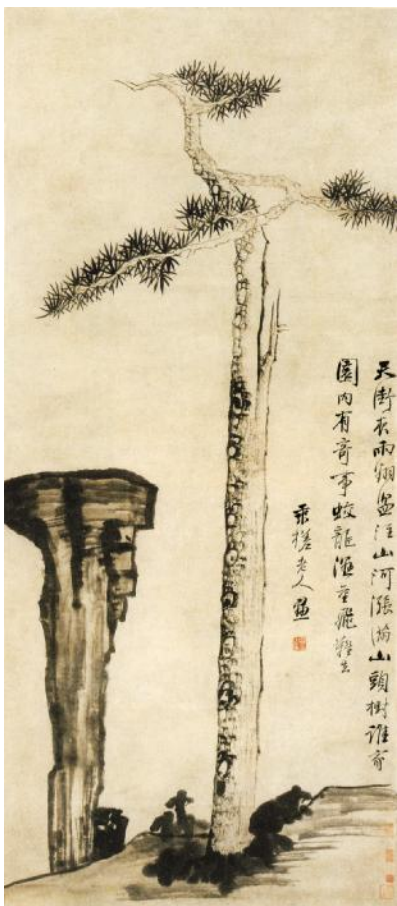 天街夜雨翻盆注江河漲滿山頭樹誰家
園內有奇事蛟龍濕重飛難去
乘槎老人畫